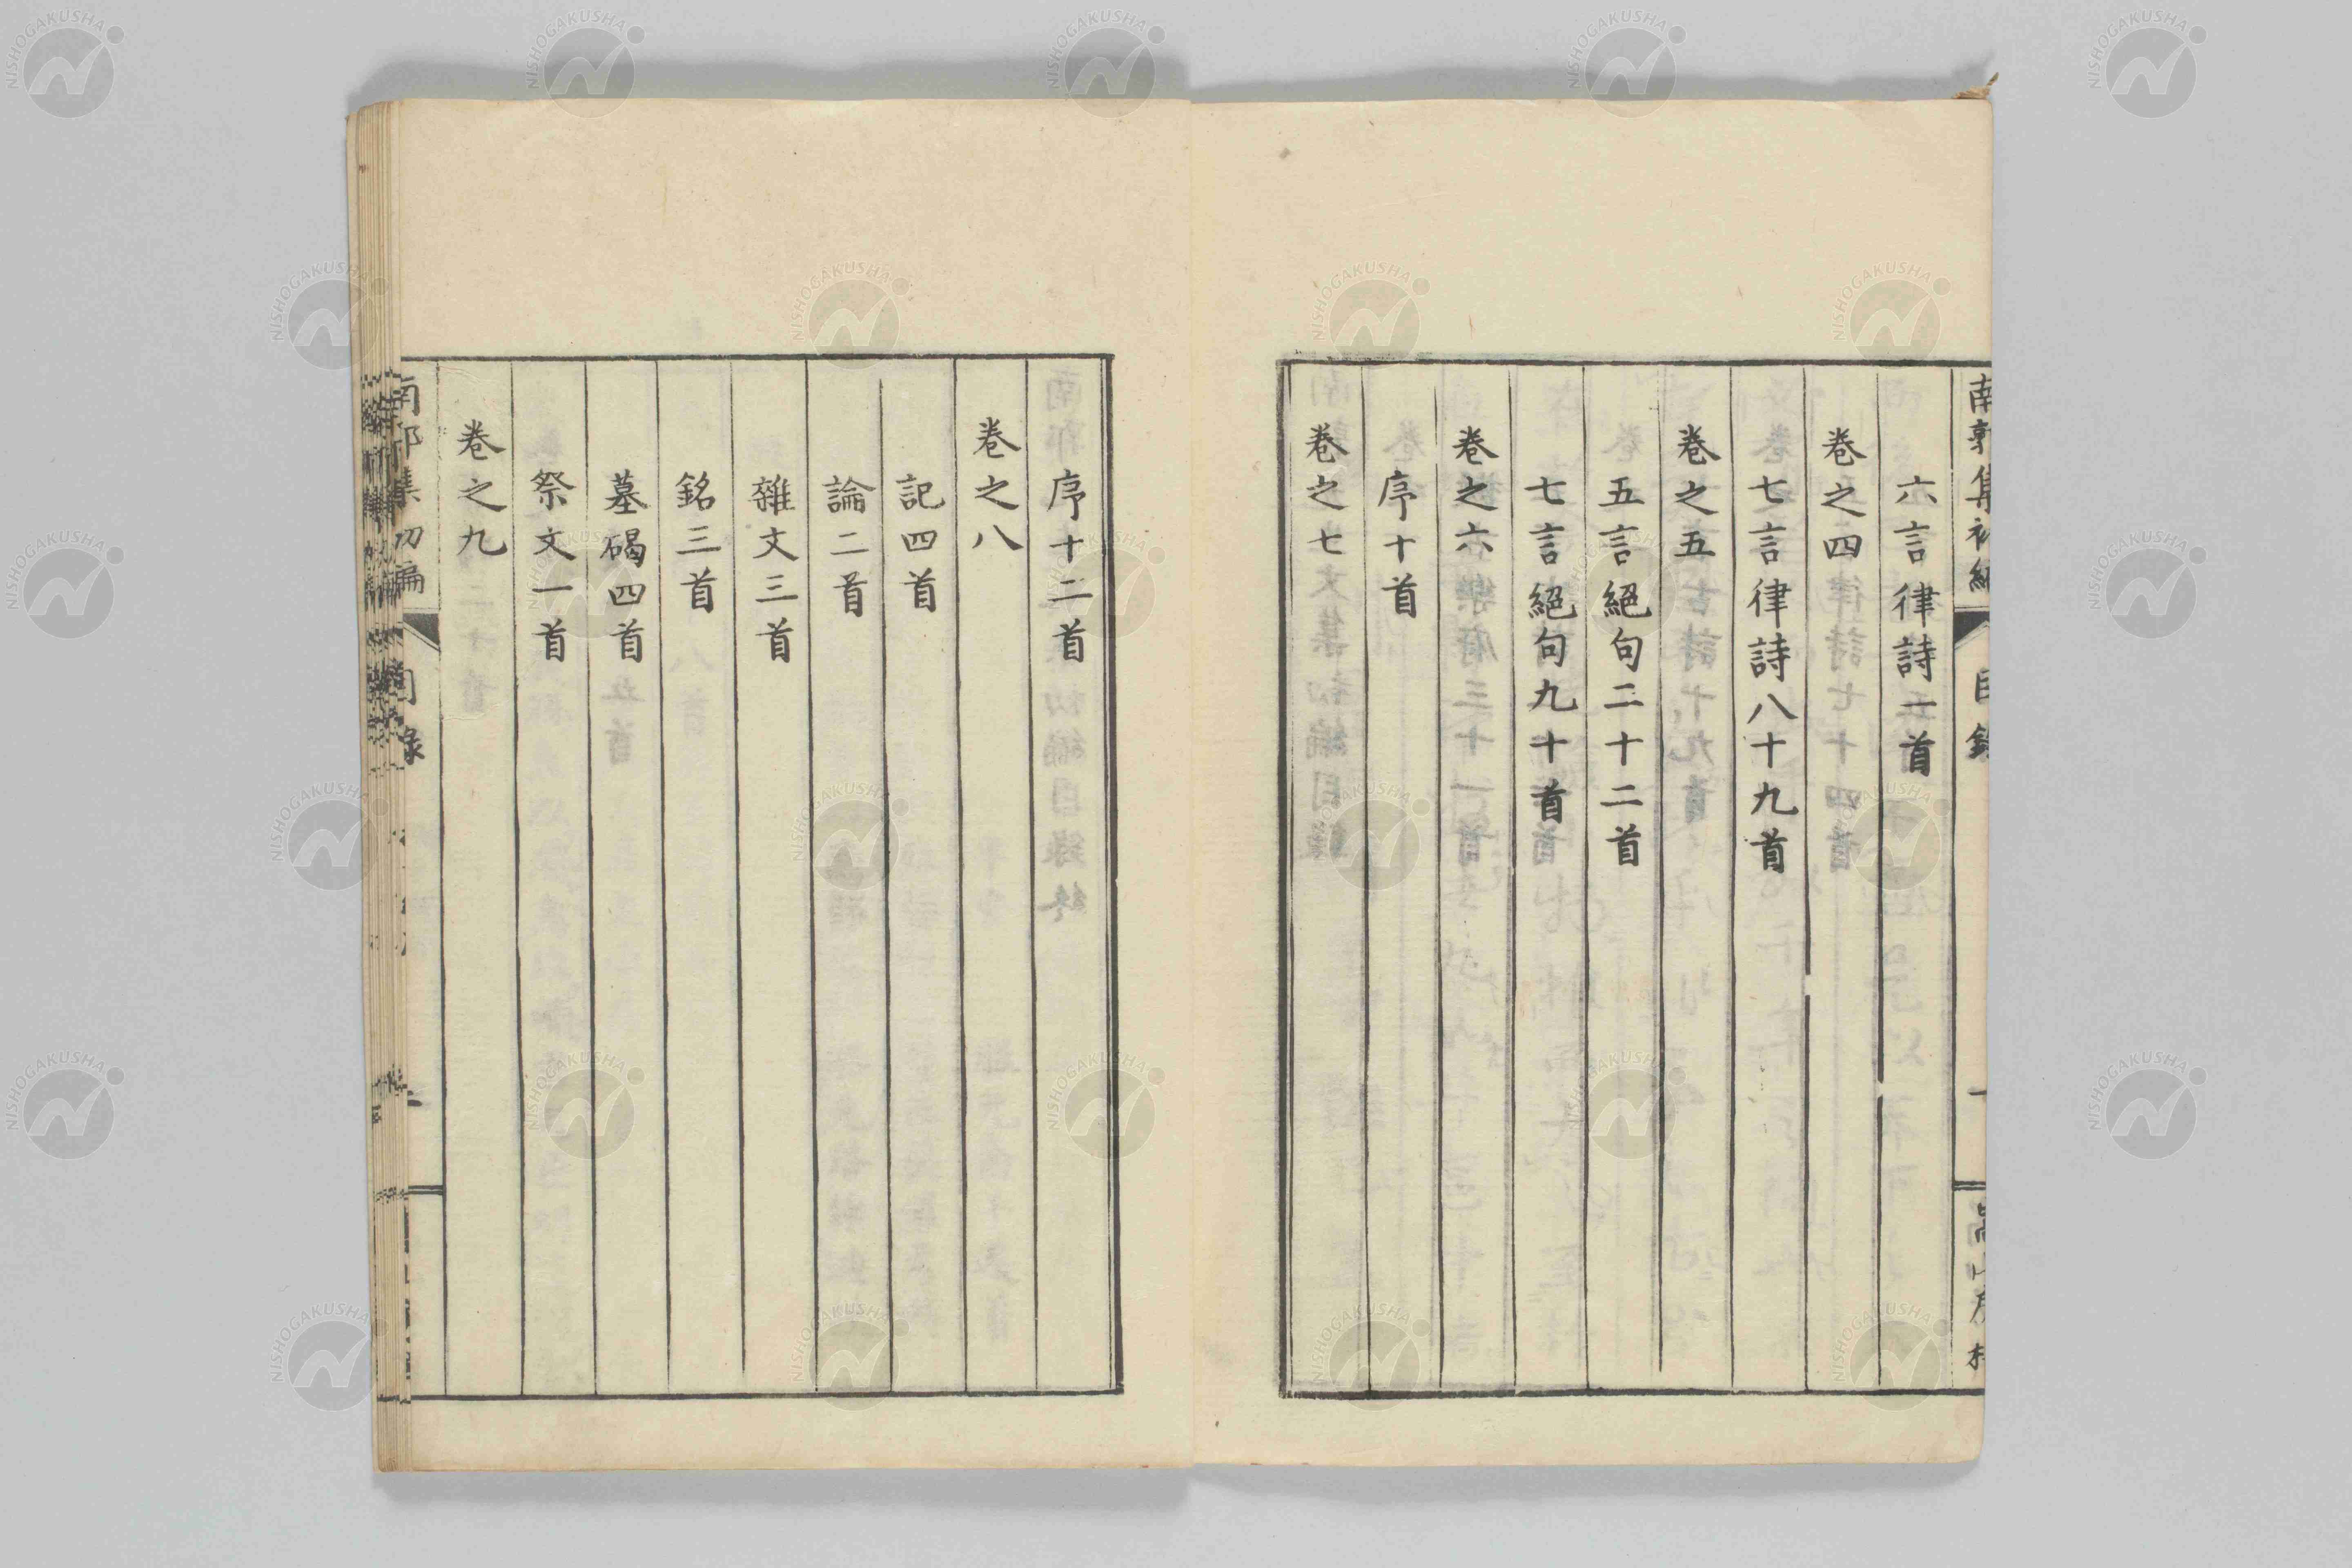 南郭集初編 目錄 一
六言律詩一首
卷之四
七言律詩八十九首
卷之五
五言絕句二十二首
七言絕句九十首
卷之六
序十首
卷之七
序十二首
卷之八
記四首
論二首
雜文三首
銘三首
墓碣四首
祭文一首
卷之九
NISHOGAKUSHA